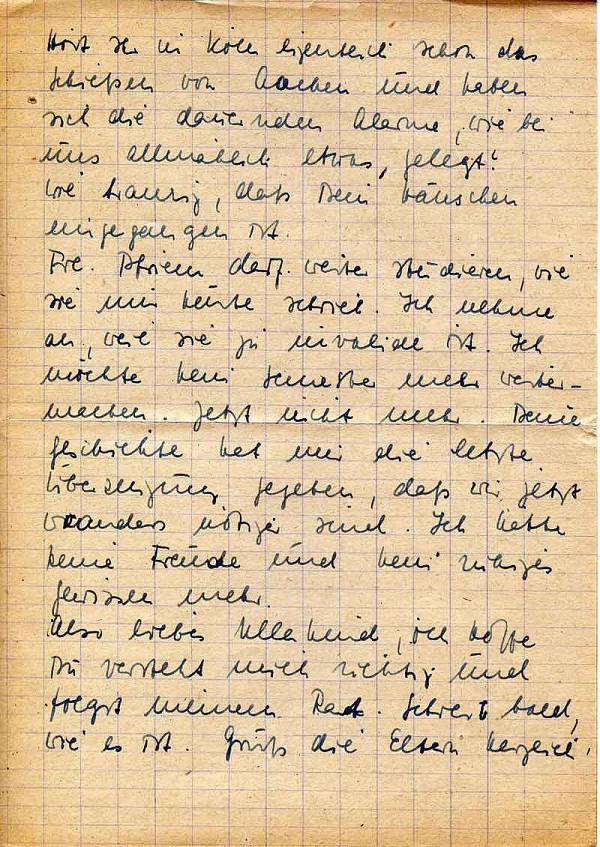 Hört Ihr in Köln eigentlich schon das
Schießen von Aachen und haben
sich die dauernden Alarme, wie bei
uns allmählich etwas, gelegt?
Wie traurig, daß Dein Häuschen
eingegangen ist.
Frl. darf weiter studieren, wie
sie mir heute schrieb. Ich nehme
an, weil sie zu invalide ist. Ich
möchte kein Semester mehr weiter-
machen. Jetzt nicht mehr. Deine
Geschichte hat mir die letzte
Überzeugung gegeben, daß wir jetzt
woanders nötiger sind. Ich hätte
keine Freude und kein ruhiges
Gewissen mehr.
Also liebes Ullakind, ich hoffe
Du verstehst mich richtig und
folgst meinem Rat. Schreib bald,
wie es ist. Grüß die Eltern herzlich